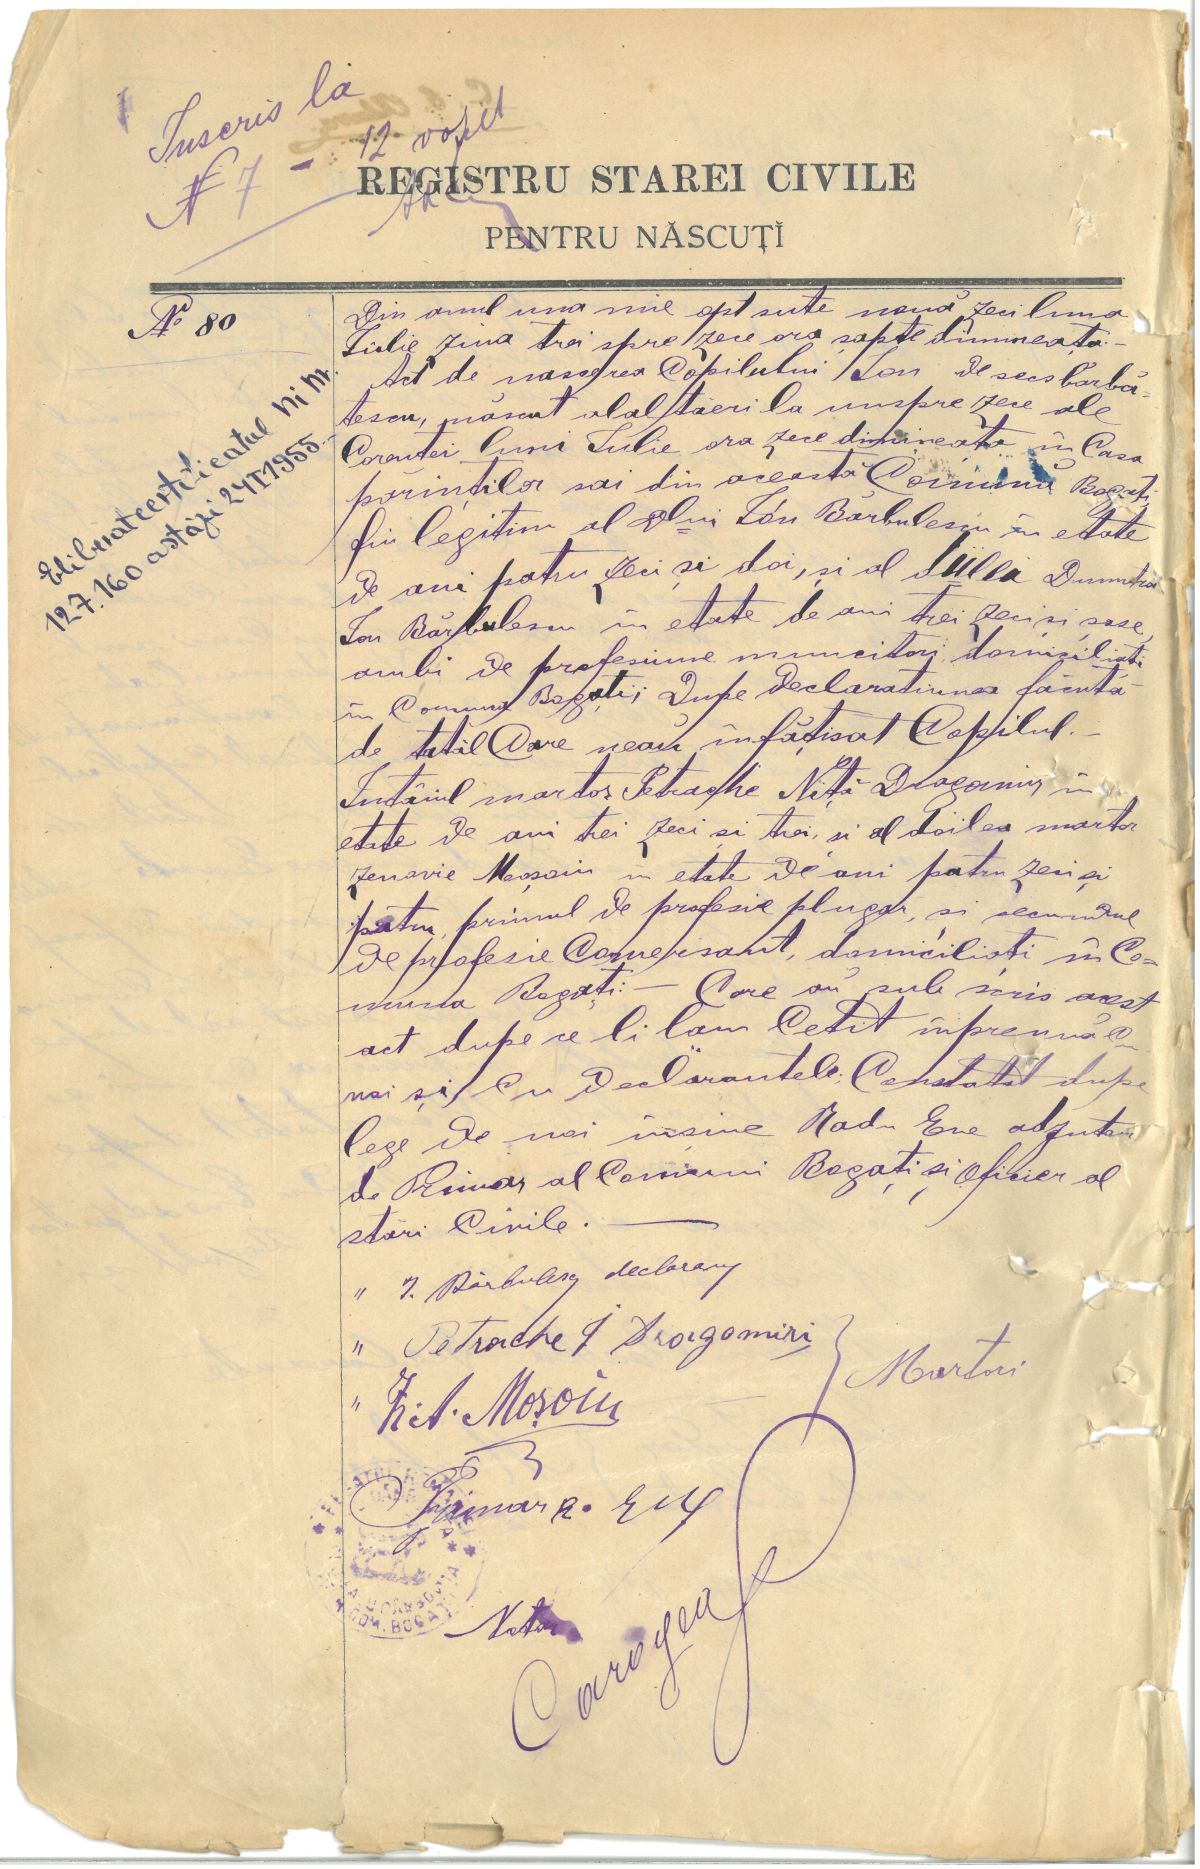 Inscris la
№ 7 - 12
REGISTRU STAREI CIVILE
PENTRU NĂSCUȚĬ
№ 80
Eliberat certificatul
127.160 astăzi 24 I 1955.
Din anul una mie opt sute nouă zeci luna
Iulie ziua trei spre zece ora șapte dimineața.-
Act de nascerea Copilului Ion de secs bărbă-
tescu, născut alaltăeri la unspre zece ale
Corentei luni Iulie ora zece dimineața în Casa
părinților sai din aceasta Comună Bogați
fiu legitim al Dlui Ion Bărbulescu în etate
de ani patru zeci și doi, și al Dumitra
Ion Bărbulescu în etate de ani trei zeci si sase,
ambi de profesiune muncitori, domiciliați
în Comuna Bogații; Dupe declaratiunea făcută
de tatăl Care neaŭ înfățisat Copilul. -
Intâiul martor Petrache Niță Dragomir, în
etate de ani trei zeci și trei, si al doilea martor
Zenovie Moșoiu în etate de ani patru zeci și
patru, primul de profesie plugar, si secundul
de profesie Comersant, domiciliați în Co=
muna Bogați: - Care aŭ sub scris acest
act dupe ce li lam Cetit înpreună Cu
noi și Cu declarantele; Constatat dupe
lege de noi insine Radu Ene adjutor
de Primar al Comuni Bogați și Oficier al
stări Civile. -
" I. Bărbulescu declarant
" Petrache Dragomiri
" Moșoiu
Martori
Primar R. Ene
Notar
COM. BOGAȚI